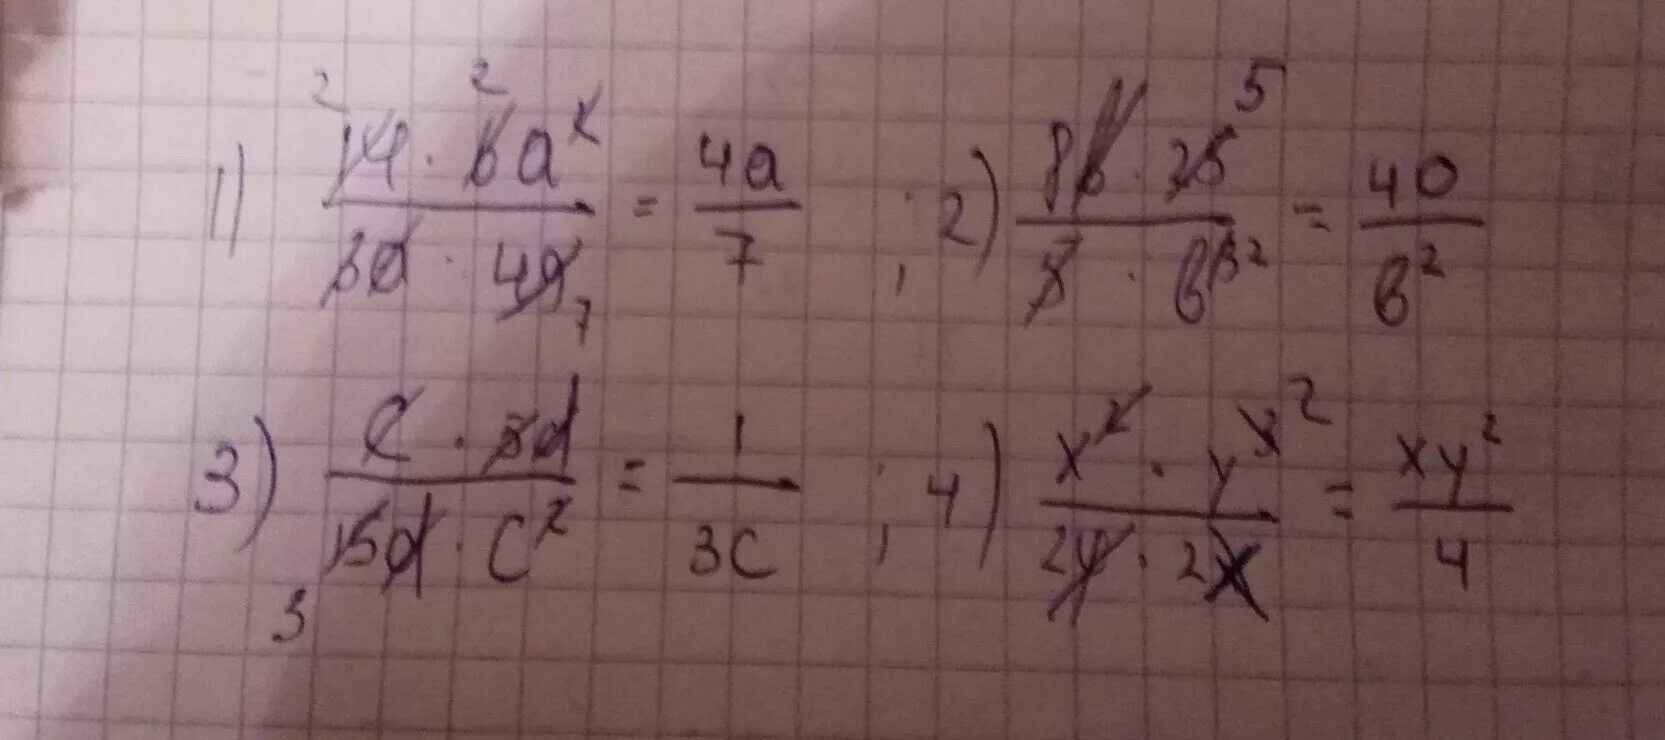 1) 14 · 6a² / 3a · 49 = 4a / 7 ; 2) 8b · 25 / 5 · bb² = 40 / b²
2 2 7 5
3) c · 5d / 15d · c² = 1 / 3c ; 4) x² · y³ / 2y · 2x = xy² / 4
3 2